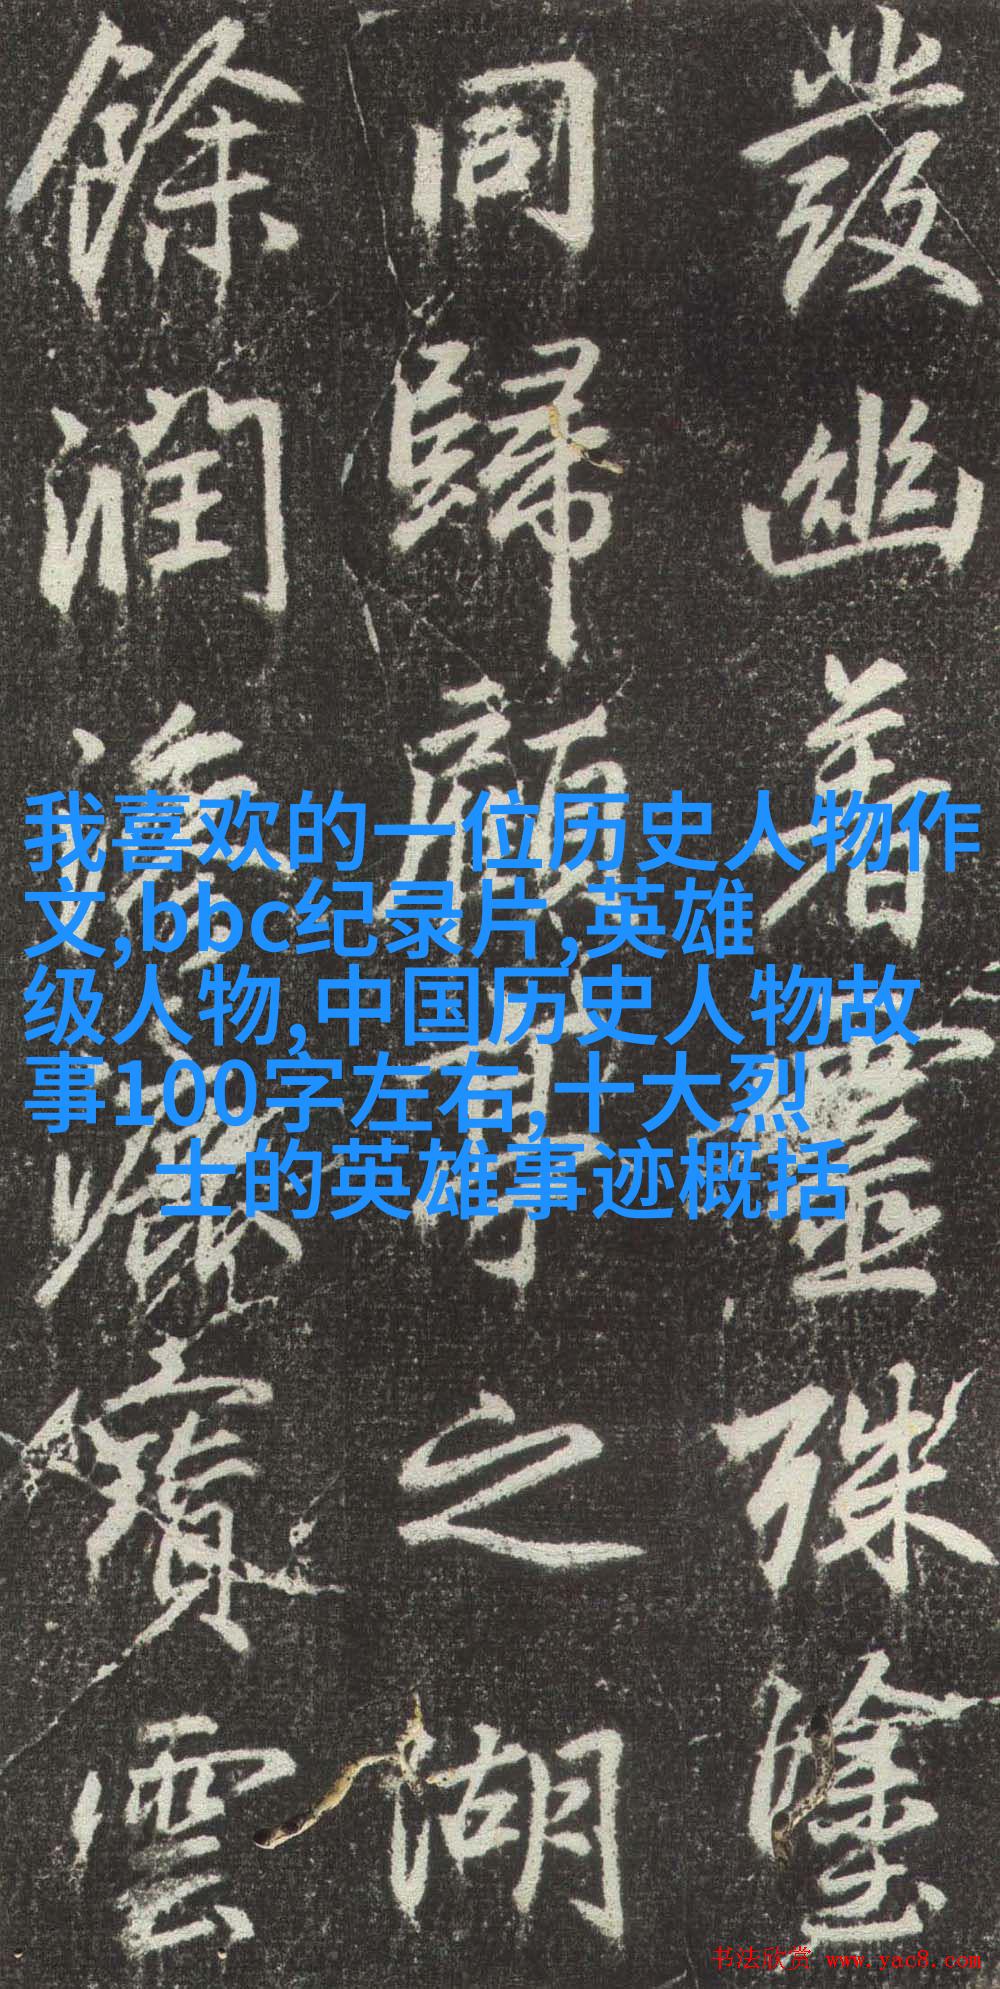 發幽著靈殊塗
同歸顧可之湖
餘潤寶雲
我喜欢的一位历史人物作
文,bbc纪录片,英雄
级人物,中国历史人物故
事100字左右,十大烈
士的英雄事迹概括
书法欣赏 www.yac8.com